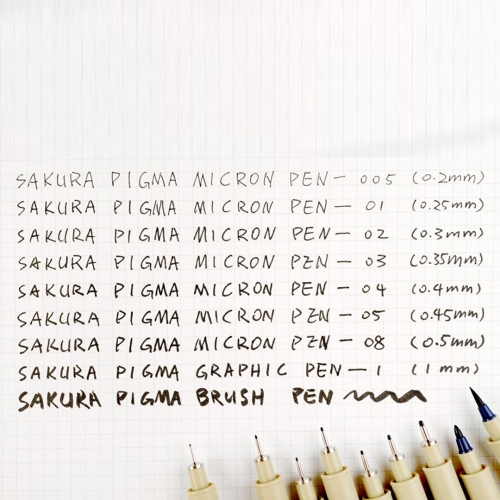 SAKURA PIGMA MICRON PEN — 005 (0.2mm)
SAKURA PIGMA MICRON PEN — 01 (0.25mm)
SAKURA PIGMA MICRON PEN — 02 (0.3mm)
SAKURA PIGMA MICRON PEN — 03 (0.35mm)
SAKURA PIGMA MICRON PEN — 04 (0.4mm)
SAKURA PIGMA MICRON PEN — 05 (0.45mm)
SAKURA PIGMA MICRON PEN — 08 (0.5mm)
SAKURA PIGMA GRAPHIC PEN — 1 (1mm)
SAKURA PIGMA BRUSH PEN